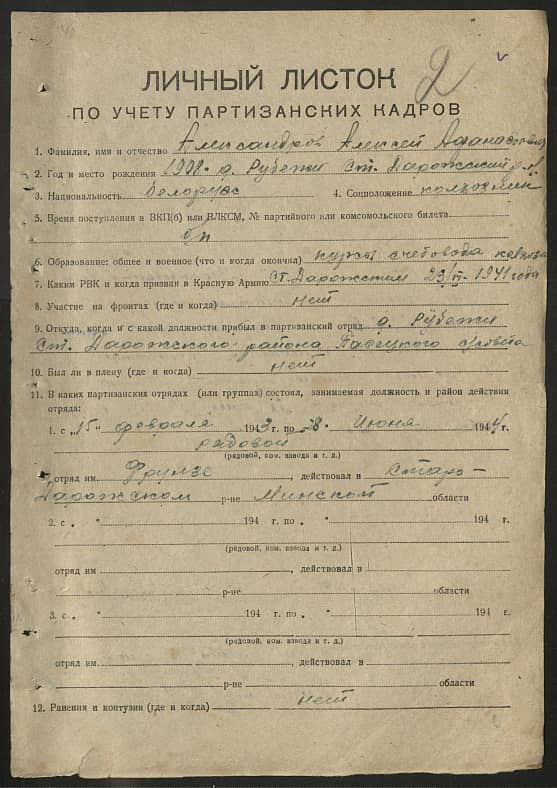 2
ЛИЧНЫЙ ЛИСТОК
ПО УЧЕТУ ПАРТИЗАНСКИХ КАДРОВ
1. Фамилия, имя и отчество Александров Алексей Афанасович
2. Год и место рождения 1908 д. Рубежи Ст. Дарожский р-н
3. Национальность белорус 4. Соцположение колхозник
5. Время поступления в ВКП(б) или ВЛКСМ, № партийного или комсомольского билета
б/п
6. Образование: общее и военное (что и когда окончил) курсы счетовода колхоза
7. Каким РВК и когда призван в Красную Армию Ст. Дарожским 23/VI-1941 года
8. Участие на фронтах (где и когда) нет
9. Откуда, когда и с какой должности прибыл в партизанский отряд д. Рубежи
Ст. Дарожского района
10. Был ли в плену (где и когда) нет
11. В каких партизанских отрядах (или группах) состоял, занимаемая должность и район действия
отряда:
1. с "15" февраля 1943 г. по 28 Июня 1944 г.
рядовой
(рядовой, ком. взвода и т. д.)
отряд им. Фрунзе, действовал в Старо-
Дарожском р-не Минской области
2. с " " 194 г. по " " 194 г.
(рядовой, ком. взвода и т. д.)
отряд им , действовал в
р-не области
3. с " " 194 г. по " " 194 г.
(рядовой, ком. взвода и т. д.)
отряд им , действовал в
р-не области
12. Ранения и контузии (где и когда) нет